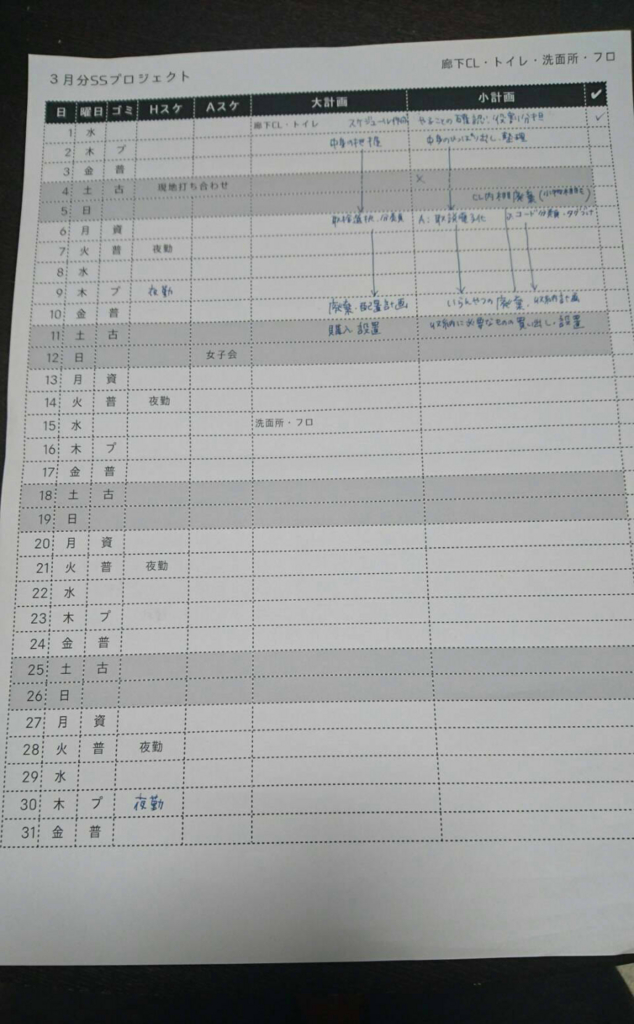 3月分SSプロジェクト
廊下CL・トイレ・洗面所・フロ
日 曜日 ゴミ Hスケ Aスケ 大計画 小計画 ✔
1 水 廊下CL・トイレ スケジュール作成 やることの確認・役割分担 ✓
2 木 プ 中身の把握 中身のひっぱり出し、整理
3 金 普
4 土 古 現地打ち合わせ ×
5 日 CL内棚廃棄
6 月 資 取捨選択、分別 A:
7 火 普 夜勤
8 水
9 木 プ 夜勤 廃棄・配置計画 いらんやつの廃棄、収納計画
10 金 普 購入 設置 収納に必要なものの買い出し・設置
11 土 古
12 日 女子会
13 月 資
14 火 普 夜勤
15 水 洗面所・フロ
16 木 プ
17 金 普
18 土 古
19 日
20 月 資
21 火 普 夜勤
22 水
23 木 プ
24 金 普
25 土 古
26 日
27 月 資
28 火 普 夜勤
29 水
30 木 プ 夜勤
31 金 普